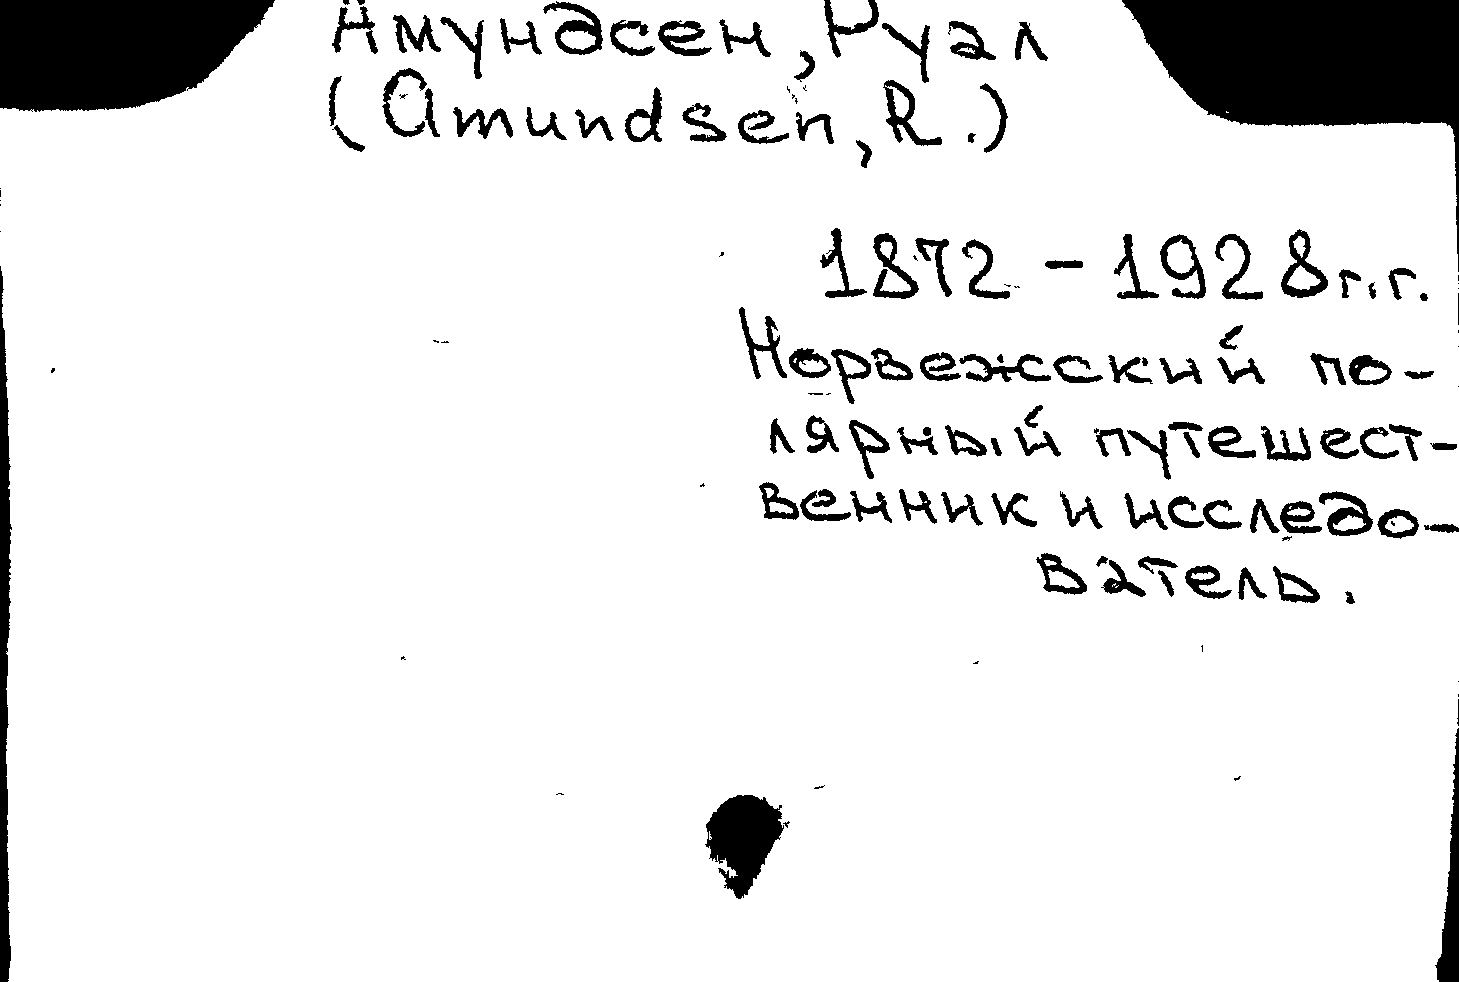 Амундсен, Руал
(Amundsen, R.)
1872 - 1928 г.г.
Норвежсский по-
лярный путешест-
венник и исследо-
ватель.